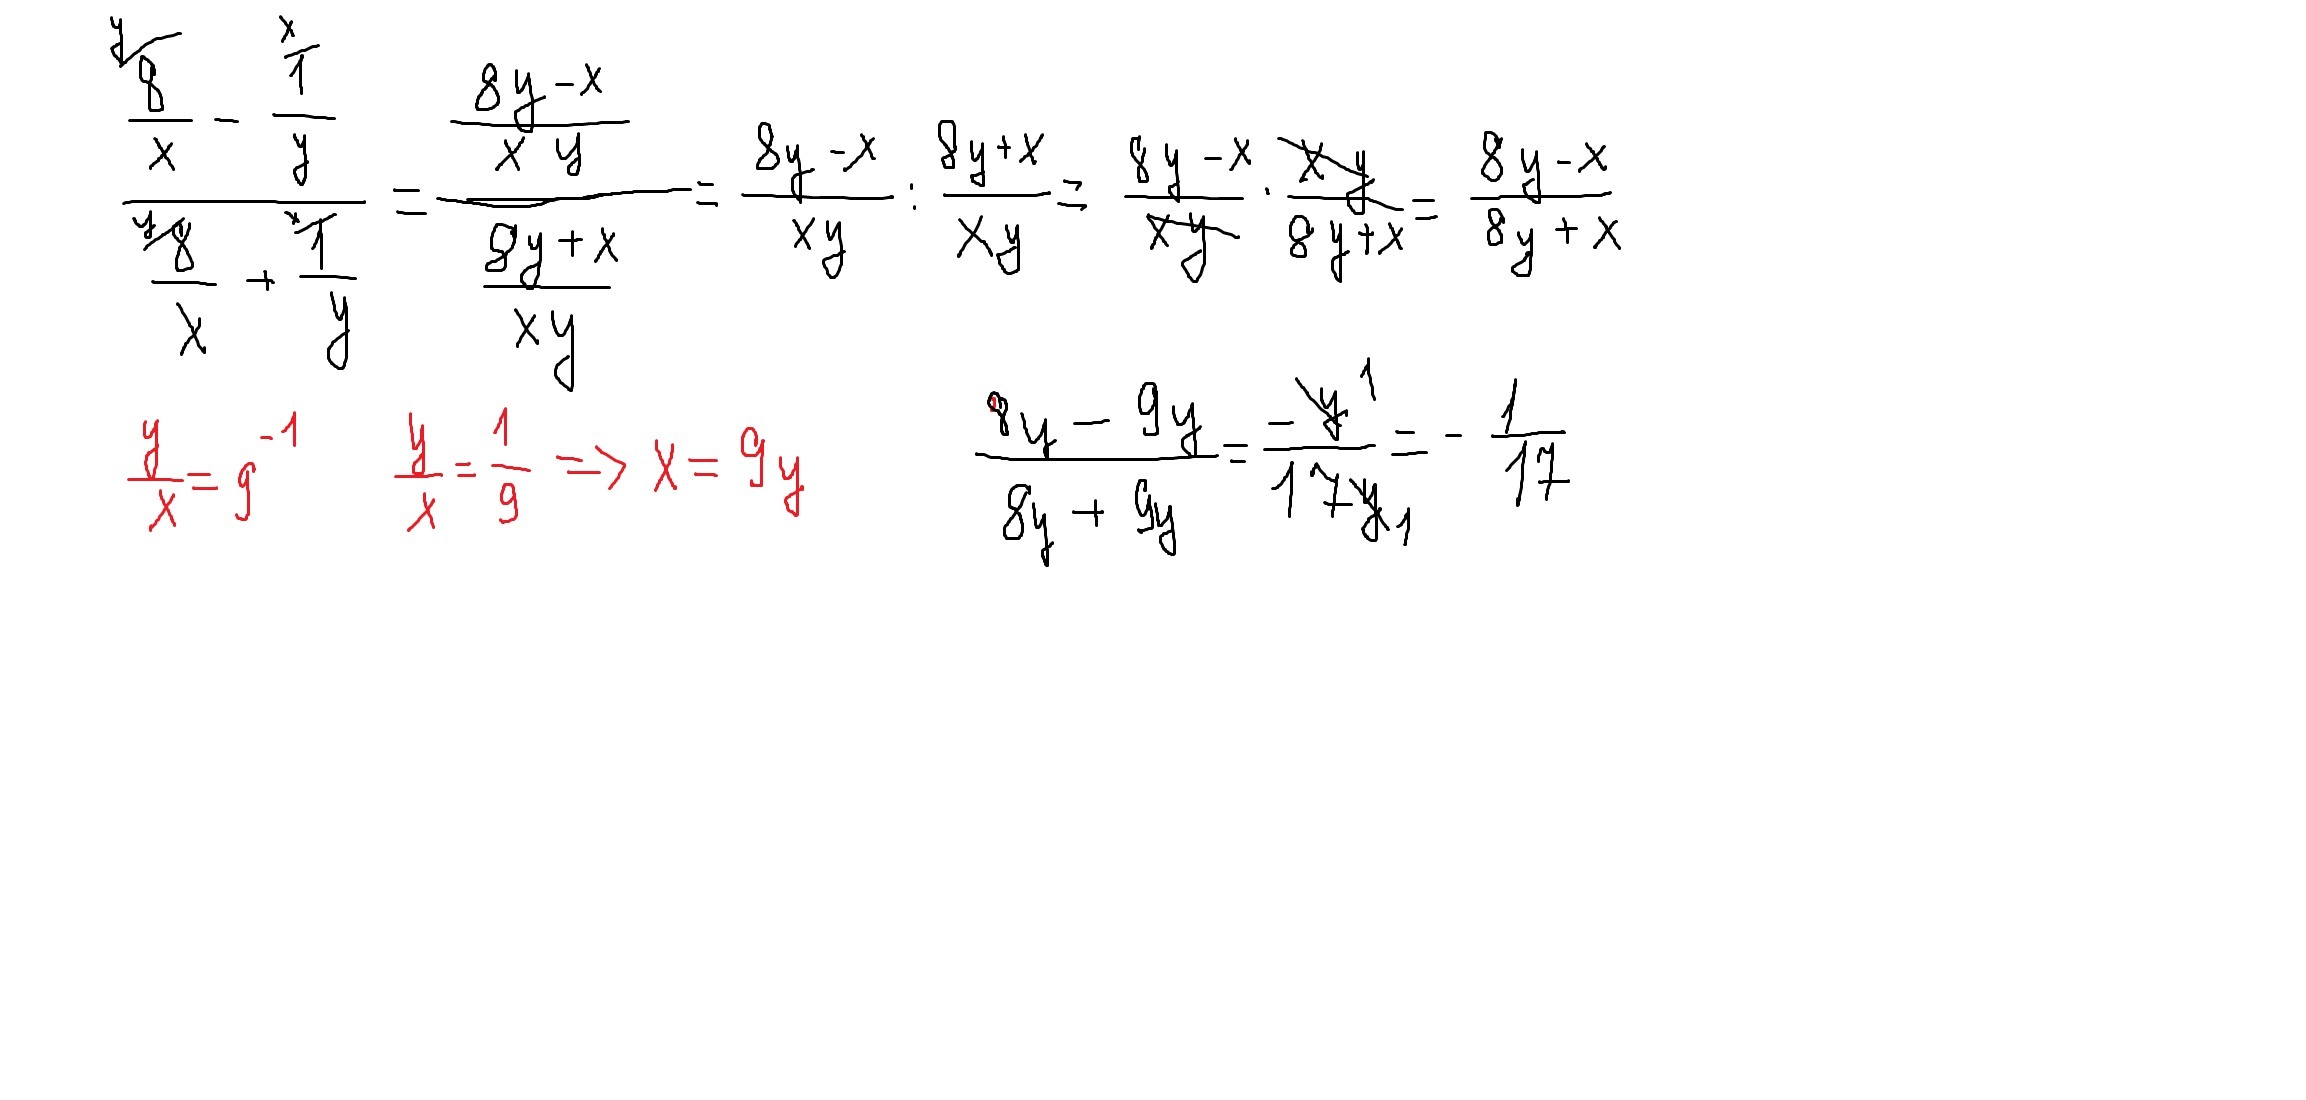 \frac{\frac{8}{x}^{y} - \frac{1}{y}^{x}}{\frac{8}{x}^{y} + \frac{1}{y}^{x}} = \frac{\frac{8y-x}{xy}}{\frac{8y+x}{xy}} = \frac{8y-x}{xy} : \frac{8y+x}{xy} = \frac{8y-x}{xy} \cdot \frac{xy}{8y+x} = \frac{8y-x}{8y+x}
\frac{y}{x} = 9^{-1} \frac{y}{x} = \frac{1}{9} => x = 9y
\frac{8y-9y}{8y+9y} = \frac{-y^{1}}{17y_{1}} = -\frac{1}{17}